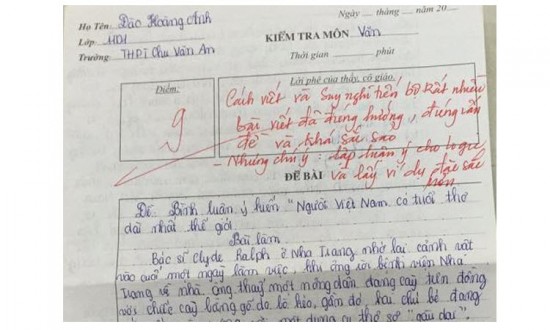 Họ Tên: Đào Hoàng Anh
Lớp 11D1
Trường: THPT Chu Văn An
Ngày ... tháng ... năm 20...
KIỂM TRA MÔN Văn
Thời gian phút
Điểm:
9
Lời phê của thầy, cô giáo.
Cách viết và suy nghĩ tiến bộ rất nhiều
bài viết đã đúng hướng, đúng vấn
đề và khá sắc sảo
- Nhưng chú ý: lập luận ý cho
và lấy ví dụ đặc sắc
hơn
ĐỀ BÀI
Đề. Bình luận ý kiến "Người Việt Nam có tuổi thơ
dài nhất thế giới.
Bài làm
Bác sĩ Clyde Ralph ở Nha Trang nhớ lại cảnh vật
vào cuối một ngày làm việc, khi ông rời bệnh viện Nha
Trang về nhà. Ông thấy một nông dân đang cày trên đồng
với chiếc cày bằng gỗ do bò kéo, gần đó, hai chú bé đang
một dụng cụ thô sơ "gầu dai".